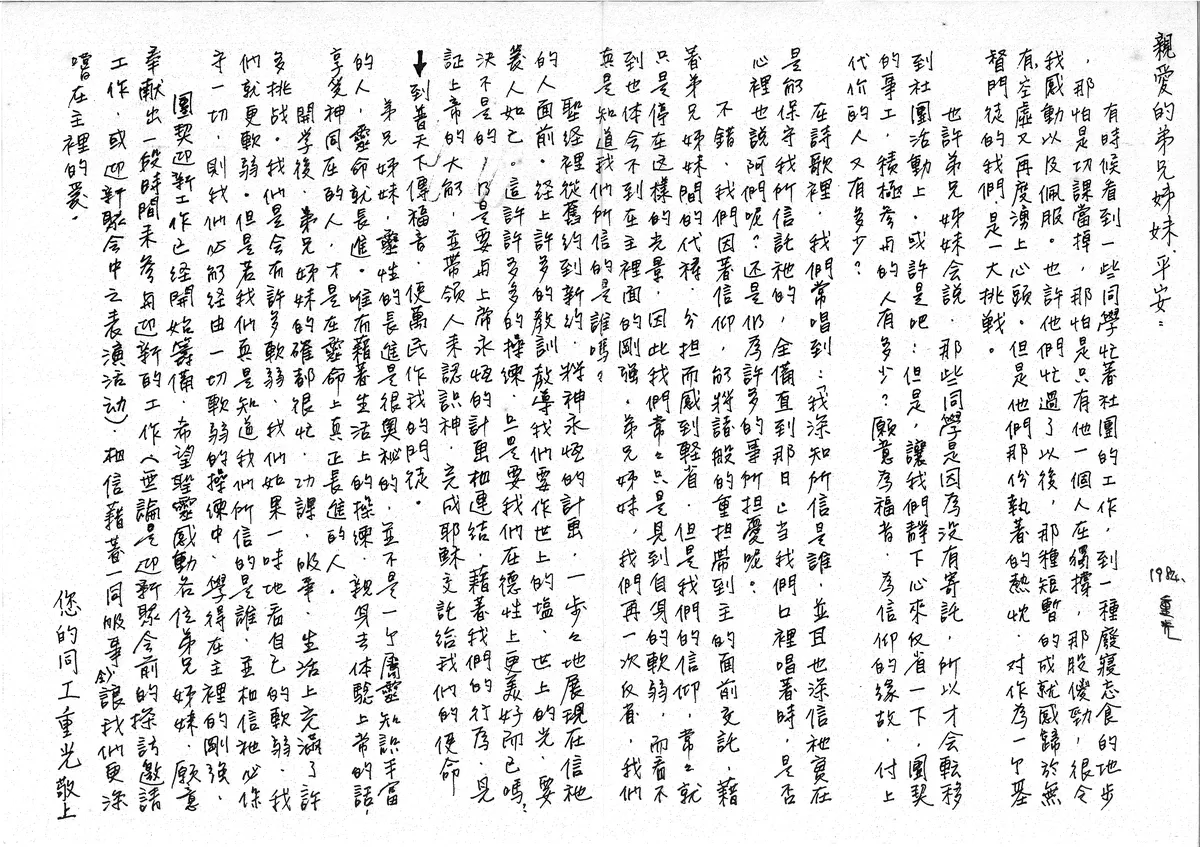 親愛的弟兄姊妹.平安：
1984. 重光
有時候看到一些同學忙著社團的工作，到一種廢寢忘食的地步
，那怕是功課當掉，那怕是只有他一個人在獨撐，那股傻勁，很令
我感動以及佩服。也許他們忙過了以後，那種短暫的成就感歸於無
有.空虛又再度湧上心頭。但是他們那份執著的熱忱.对作為一个基
督門徒的我們.是一大挑戰。
也許弟兄姊妹会説.那些同學是因為沒有寄託，所以才会転移
到社團活動上。或許是吧！但是，讓我們靜下心來反省一下，團契
的事工，積極參与的人有多少？願意為福音.為信仰的緣故.付上
代价的人又有多少？
在詩歌裡，我們常唱到：「我深知所信是誰.並且也深信祂實在
是能保守我所信託祂的，全備直到那日」当我們口裡唱著時，是否
心裡也說阿們呢？还是仍為許多的事所担憂呢？
不錯.我們因著信仰，能将諸般的重担帶到主的面前交託，藉
著弟兄姊妹間的代禱.分担而感到輕省.但是我們的信仰，常々就
只是停在这樣的光景，因此我們常々只是見到自身的軟弱，而看不
到也体会不到在主裡面的剛强。弟兄姊妹，我們再一次反省，我們
真是知道我們所信的是誰嗎？
聖经裡從舊約到新約.将神永恆的計畫，一步々地展現在信祂
的人面前。经上許多的教訓教導我們要作世上的塩、世上的光、要
爱人如己。這許許多多的操練.只是要我們在德性上更美好而已嗎？
決不是的，乃是要与上帝永恆的計畫相連結.藉著我們的行為.見
証上帝的大能.並帶領人来認識神.完成耶穌交託給我們的使命
到普天下傳福音.使萬民作我的門徒。
弟兄姊妹，靈性的長進是很奧祕的.並不是一个屬靈知識丰富
的人，靈命就長進。唯有藉著生活上的操練.親身去体驗上帝的話，
享受神同在的人，才是在靈命上真正長進的人。
開學後.弟兄姊妹的確都很忙.功課、服事、生活上充滿了許
多挑战。我們是会有許多軟弱.我們如果一味地看自己的軟弱.我
們就更軟弱。但是若我們真是知道我們所信的是誰.並相信祂必保
守一切.則我們必能经由一切軟弱的操練中.學得在主裡的剛强.
團契迎新工作已经開始籌備.希望聖靈感動各位弟兄姊妹.願意
奉献出一段時間来參与迎新的工作（無論是迎新聚会前的探訪邀請
工作.或迎新聚会中之表演活动）.相信藉著一同服事會讓我們更深
嚐在主裡的爱。
您的同工重光敬上